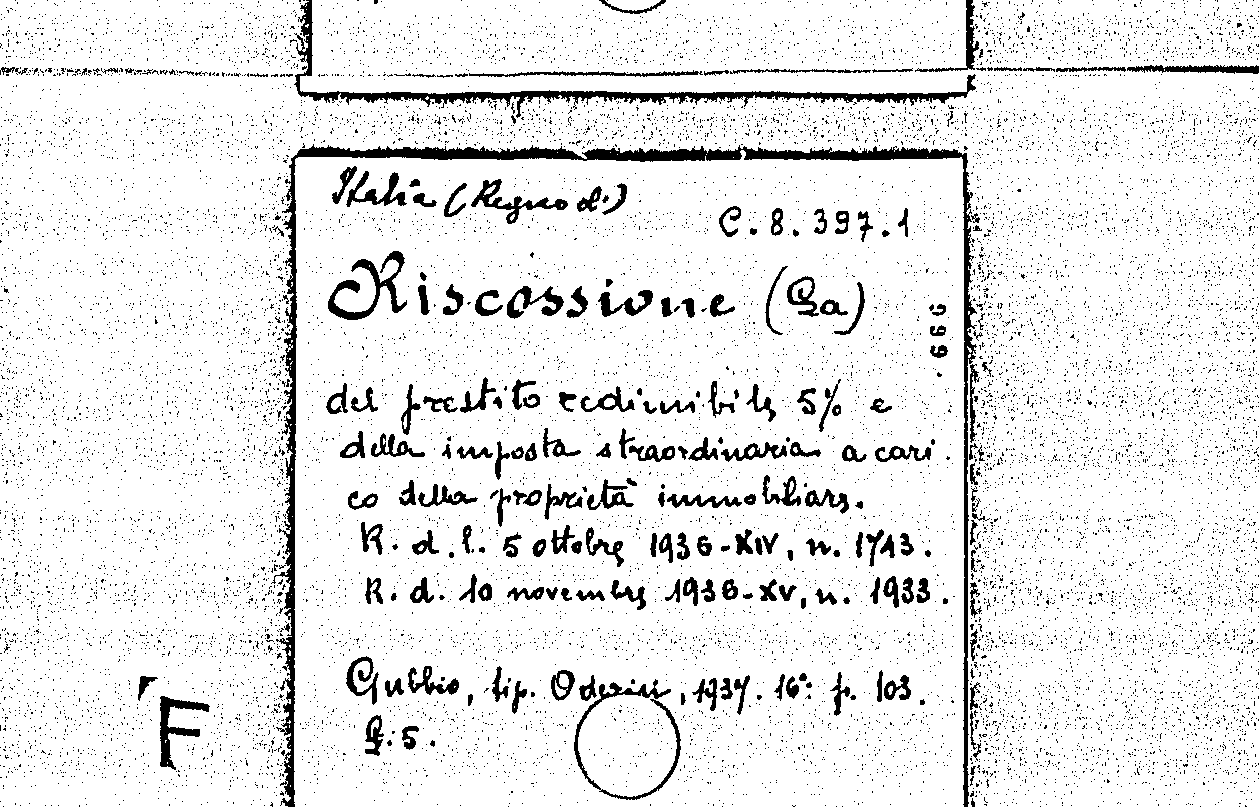 Italia (Regno di)
C. 8. 397. 1
Riscossione (La)
999.
del prestito redimibile 5% e
della imposta straordinaria a cari
co della proprietà immobiliare.
R. d. l. 5 ottobre 1936-XIV, n. 1743.
R. d. 10 novembre 1936-XV, n. 1933.
Gubbio, tip. Oderisi, 1937. 16°: p. 103.
£. 5.
F